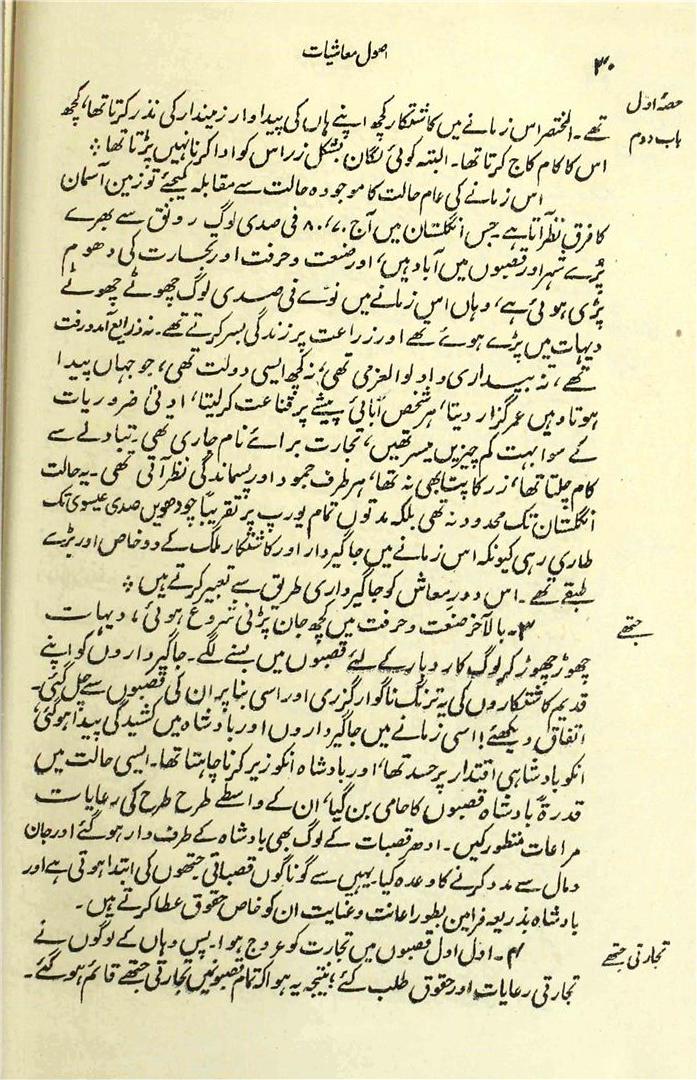 ۳۰
اصول معاشیات
حصۂ اوّل
باب دوم
تھے۔ المختصر اس زمانے میں کاشتکار کچھ اپنے ہاں کی پیداوار زمیندار کی نذر کرتا تھا، کچھ
اس کا کام کاج کرتا تھا۔ البتہ کوئی لگان بشکل زر اس کو ادا کرنا نہیں پڑتا تھا ؞
اس زمانے کی عام حالت کا موجودہ حالت سے مقابلہ کیجئے تو زمین آسمان
کا فرق نظر آتا ہے۔ جس انگلستان میں آج ۸۰/۷۰ فی صدی لوگ رونق سے بھرے
پُرے شہر اور قصبوں میں آباد ہیں، اور صنعت و حرفت اور تجارت کی دھوم
پڑی ہوئی ہے، وہاں اس زمانے میں نوے فی صدی لوگ چھوٹے چھوٹے
دیہات میں پڑے ہوئے تھے اور زراعت پر زندگی بسر کرتے تھے۔ نہ ذرایع آمد و رفت
تھے، نہ بیداری و اولوالعزمی تھی، نہ کچھ ایسی دولت تھی، جو جہاں پیدا
ہوتا وہیں عمر گزار دیتا، ہر شخص آبائی پیشے پر قناعت کر لیتا، ادنیٰ ضروریات
کے سوا بہت کم چیزیں میسر تھیں، تجارت برائے نام جاری تھی۔ تبادلے سے
کام چلتا تھا، زر کا پتا بھی نہ تھا، ہر طرف جمود اور پسماندگی نظر آتی تھی۔ یہ حالت
انگلستان تک محدود نہ تھی بلکہ مدتوں تمام یورپ پر تقریباً چودھویں صدی عیسوی تک
طاری رہی کیونکہ اس زمانے میں جاگیردار اور کاشتکار ملک کے دو خاص اور بڑے
طبقے تھے۔ اس دورِ معاش کو جاگیرداری طریق سے تعبیر کرتے ہیں ؞
جتھے
۳۔ بالآخر صنعت و حرفت میں کچھ جان پڑنی شروع ہوئی، دیہات
چھوڑ چھوڑ کر لوگ کاروبار کے لئے قصبوں میں بسنے لگے۔ جاگیرداروں کو اپنے
قدیم کاشتکاروں کی یہ ترنگ ناگوار گزری اور اسی بنا پر ان کی قصبوں سے چل گئی۔
اتفاق دیکھئے! اسی زمانے میں جاگیرداروں اور بادشاہ میں کشیدگی پیدا ہوگئی،
انکو بادشاہی اقتدار پر حسد تھا، اور بادشاہ انکو زیر کرنا چاہتا تھا۔ ایسی حالت میں
قدرۃً بادشاہ قصبوں کا حامی بن گیا، ان کے واسطے طرح طرح کی رعایات
مراعات منظور کیں۔ ادھر قصبات کے لوگ بھی بادشاہ کے طرف دار ہوگئے اور جان
و مال سے مدد کرنے کا وعدہ کیا۔ یہیں سے گوناگوں قصباتی جتھوں کی ابتدا ہوتی ہے اور
بادشاہ بذریعہ فرامین بطور اعانت و عنایت ان کو خاص حقوق عطا کرتے ہیں۔
تجارتی جتھے
۴۔ اوّل اوّل قصبوں میں تجارت کو عروج ہوا۔ پس وہاں کے لوگوں نے
تجارتی رعایات اور حقوق طلب کئے؛ نتیجہ یہ ہوا کہ تمام قصبوں میں تجارتی جتھے قائم ہوگئے۔